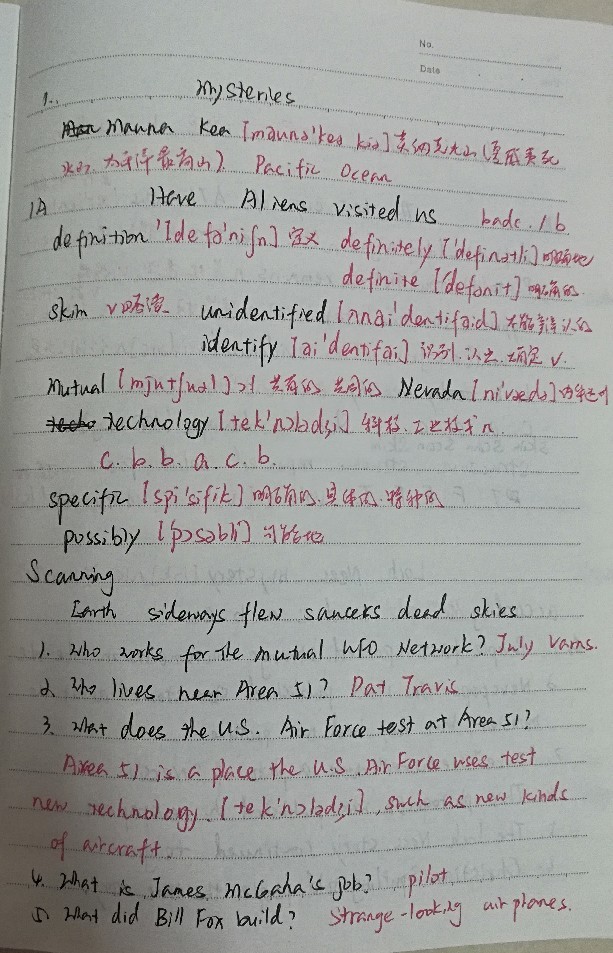 No.
Date
1. Mysteries
Manna Kea [mauna'kea kia] 莫纳克火山 (夏威夷死火山 太平洋最高山) Pacific Ocean
1A Have Aliens visited us badc. 1 b
definition [defə'niʃn] 定义 definitely ['definətli] 明确地
definite [defənit] 明确的
skim v 略读 unidentified [ʌnai'dentifaid] 不能辨认的
identify [ai'dentifai] 识别.认出.确定 v.
mutual [mjutʃuəl] 共有的 共同的 Nevada [ni'vædə]
technology [tek'nɔlədʒi] 科技.工业技术 n.
c. b. b. a. c. b.
specific [spi'sifik] 明确的.具体的.特种的
possibly [pɔsəbli] 可能地
Scanning
Earth sideways flew saucers dead skies
1. Who works for the mutual UFO Network? July Varns.
2. Who lives near Area 51? Pat Travis
3. What does the U.S. Air Force test at Area 51?
Area 51 is a place the U.S. Air Force uses test
new technology. [tek'nɔlədʒi], such as new kinds
of aircraft.
4. What is James McGaha's job? pilot
5. What did Bill Fox build? Strange-looking airplanes.